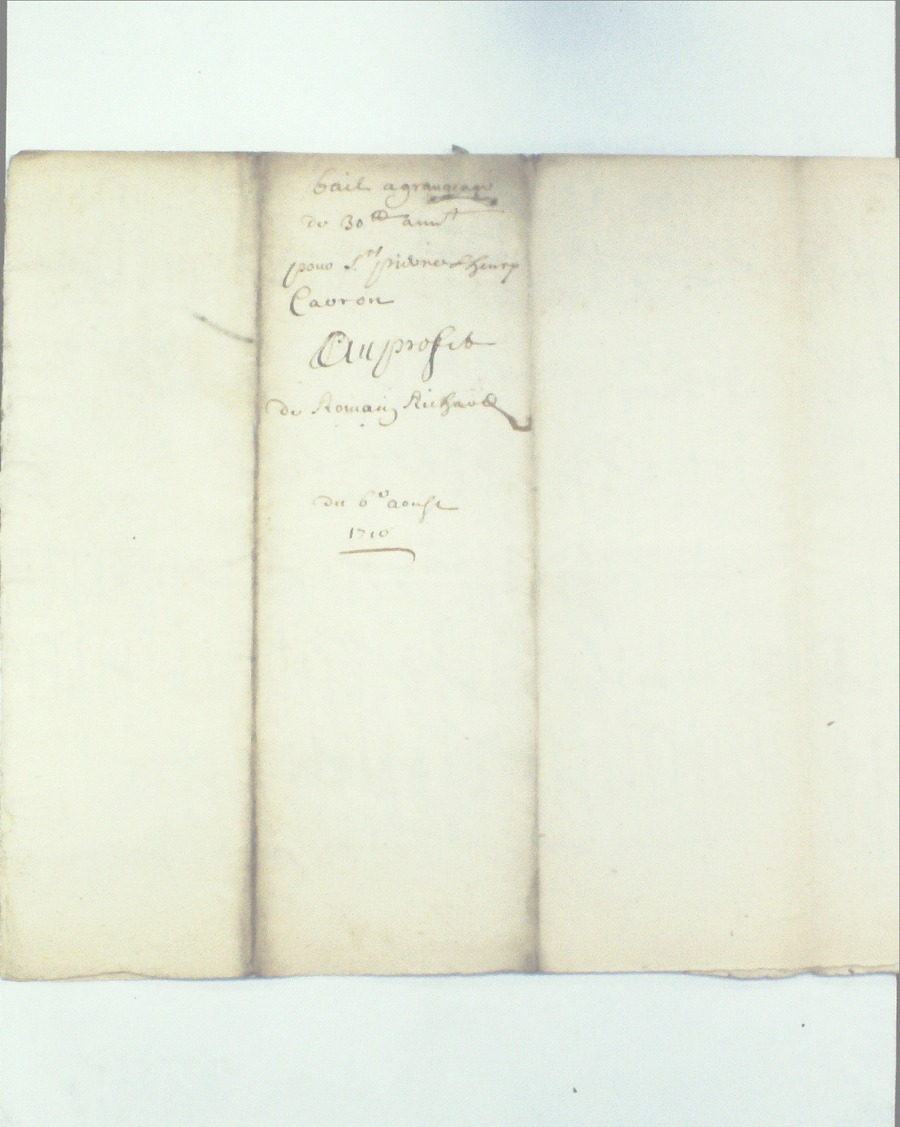 bail a grangeage
de 30 tt
pour S.rs pierre & henry
Cavron
Au profit
de Romain Richard
du 6e aoust
1710